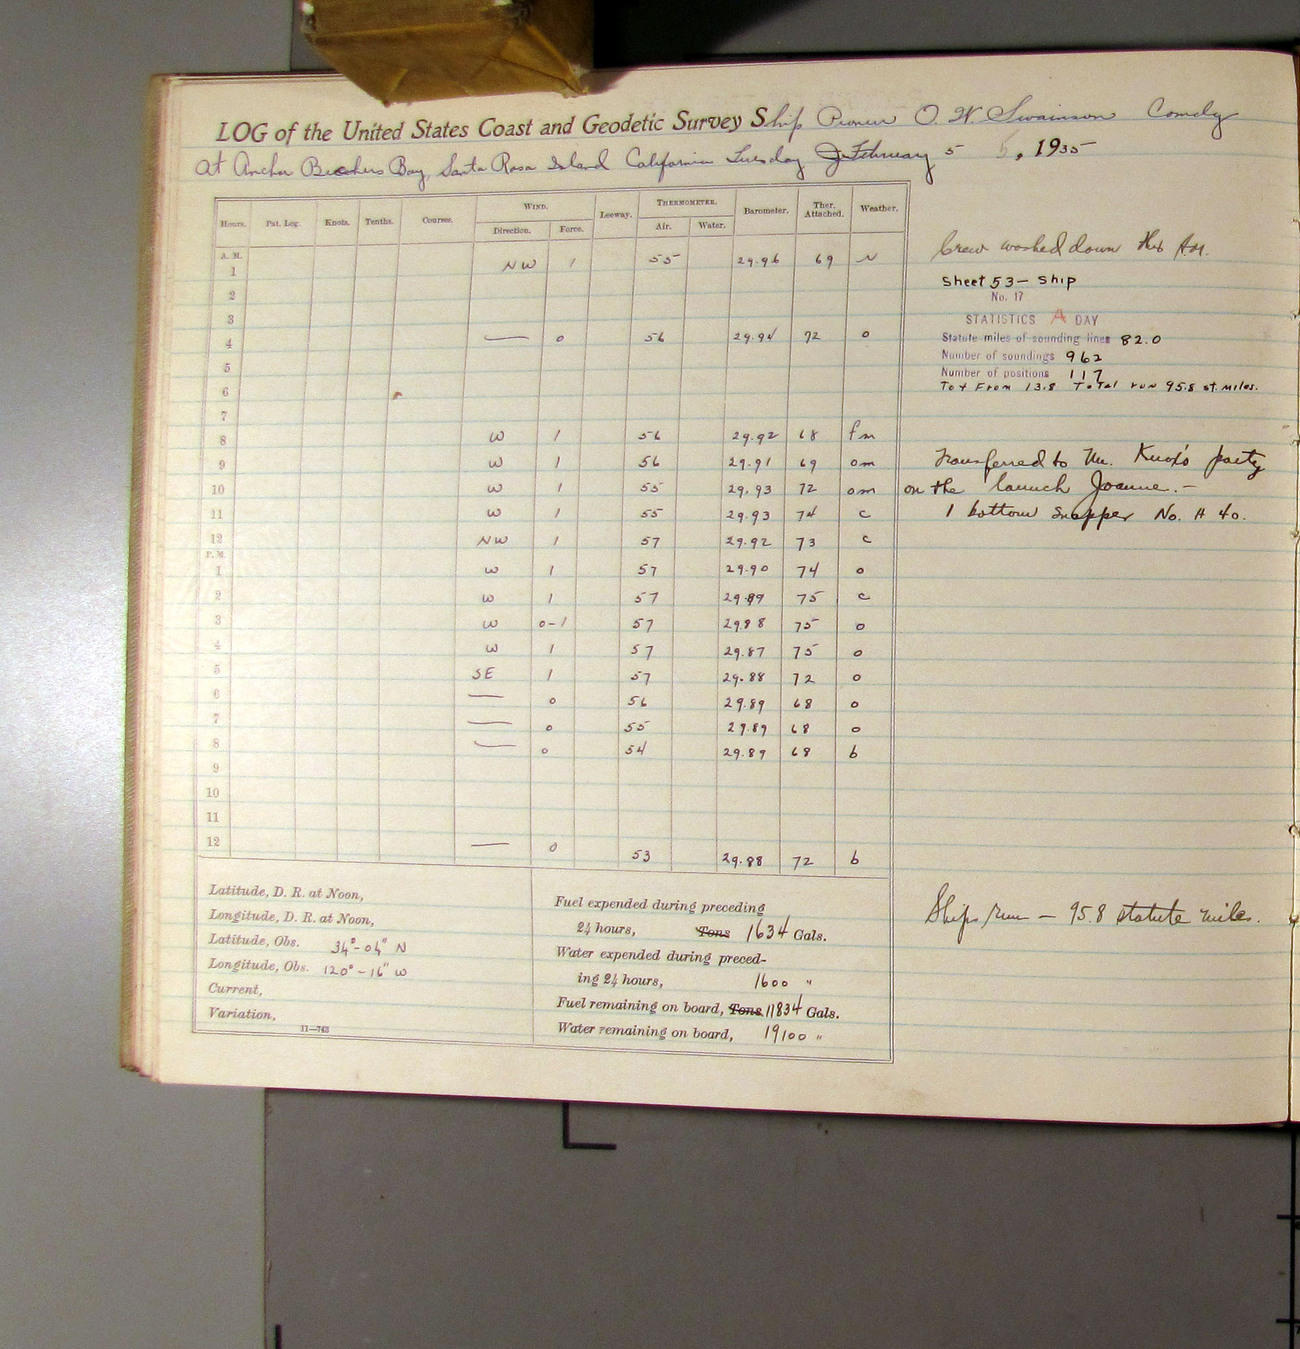 LOG of the United States Coast and Geodetic Survey Ship Pioneer O. W. Swainson Comdg
At Anchor Bechers Bay, Santa Rosa Island California Tuesday February 5, 1935
Hours. Pat. Log. Knots. Tenths. Courses. WIND. Leeway. THERMOMETER. Barometer. Ther. Attached. Weather.
Direction. Force. Air. Water.
A. M.
1 NW 1 55 29.96 69
2
3
4 — 0 56 72 o
5
6
7
8 W 1 56 29.92 68 fm
9 W 1 56 29.91 69 om
10 W 1 55 29.93 72 om
11 W 1 55 29.93 74 c
12 NW 1 57 29.92 73 c
P. M.
1 W 1 57 29.90 74 o
2 W 1 57 29.89 75 c
3 W 0-1 57 29.88 75 o
4 W 1 57 29.87 75 o
5 SE 1 57 29.88 72 o
6 — 0 56 29.89 68 o
7 — 0 55 29.89 68 o
8 — 0 54 29.89 68 b
9
10
11
12 — 0 53 29.88 72 b
Crew washed down this A.M.
Sheet 53 - Ship
No. 17
STATISTICS A DAY
Statute miles of sounding lines 82.0
Number of soundings 962
Number of positions 117
To & From 13.8 Total run 95.8 st. miles.
Transferred to Mr. Knox's party
on the launch Joanne.-
1 bottom snapper No. # 40.
Ships run - 95.8 statute miles.
Latitude, D. R. at Noon,
Longitude, D. R. at Noon,
Latitude, Obs. 34°-04" N
Longitude, Obs. 120°-16" W
Current,
Variation,
11—763
Fuel expended during preceding
24 hours, Tons 1634 Gals.
Water expended during preced-
ing 24 hours, 1600 "
Fuel remaining on board, Tons 11834 Gals.
Water remaining on board, 19100 "